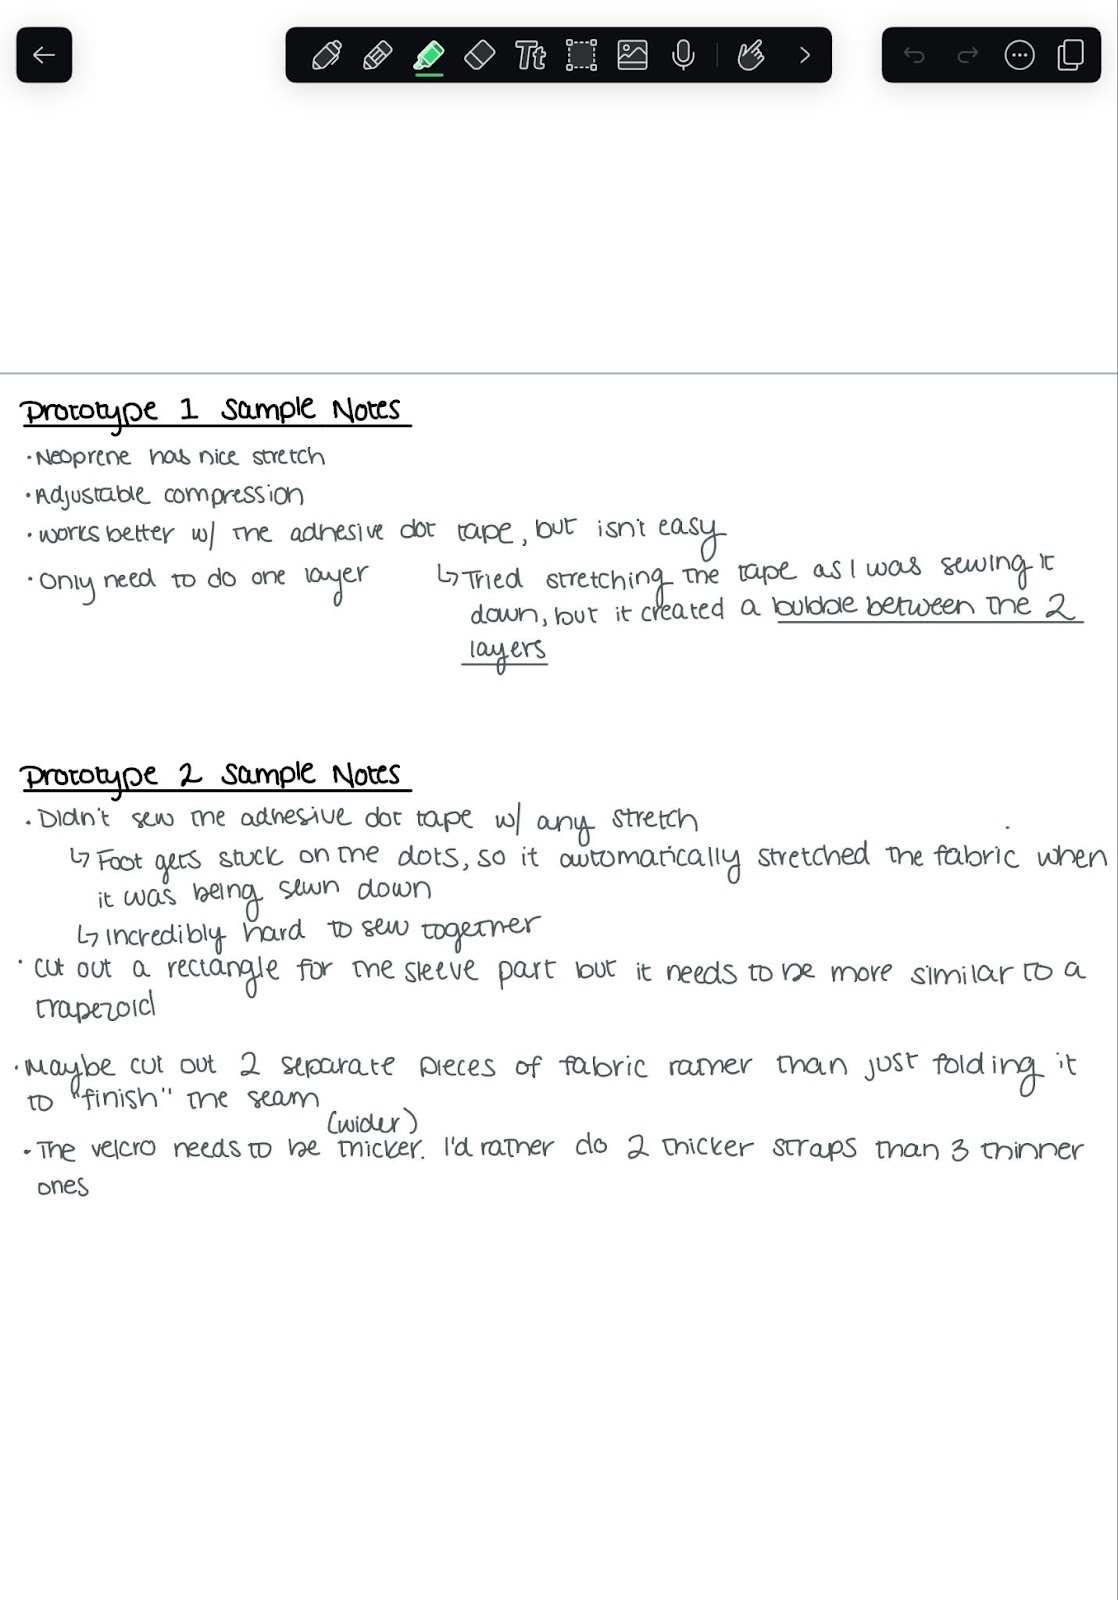 Tt
Prototype 1 Sample Notes
• Neoprene has nice stretch
• Adjustable compression
• Works better w/ the adhesive dot tape, but isn't easy
• Only need to do one layer
↳ Tried stretching the tape as I was sewing it
down, but it created a bubble between the 2
layers
Prototype 2 Sample Notes
• Didn't sew the adhesive dot tape w/ any stretch
↳ Foot gets stuck on the dots, so it automatically stretched the fabric when
it was being sewn down
↳ Incredibly hard to sew together
• Cut out a rectangle for the sleeve part but it needs to be more similar to a
trapezoid
• Maybe cut out 2 separate pieces of fabric rather than just folding it
to "finish" the seam
(wider)
• The velcro needs to be thicker. I'd rather do 2 thicker straps than 3 thinner
ones